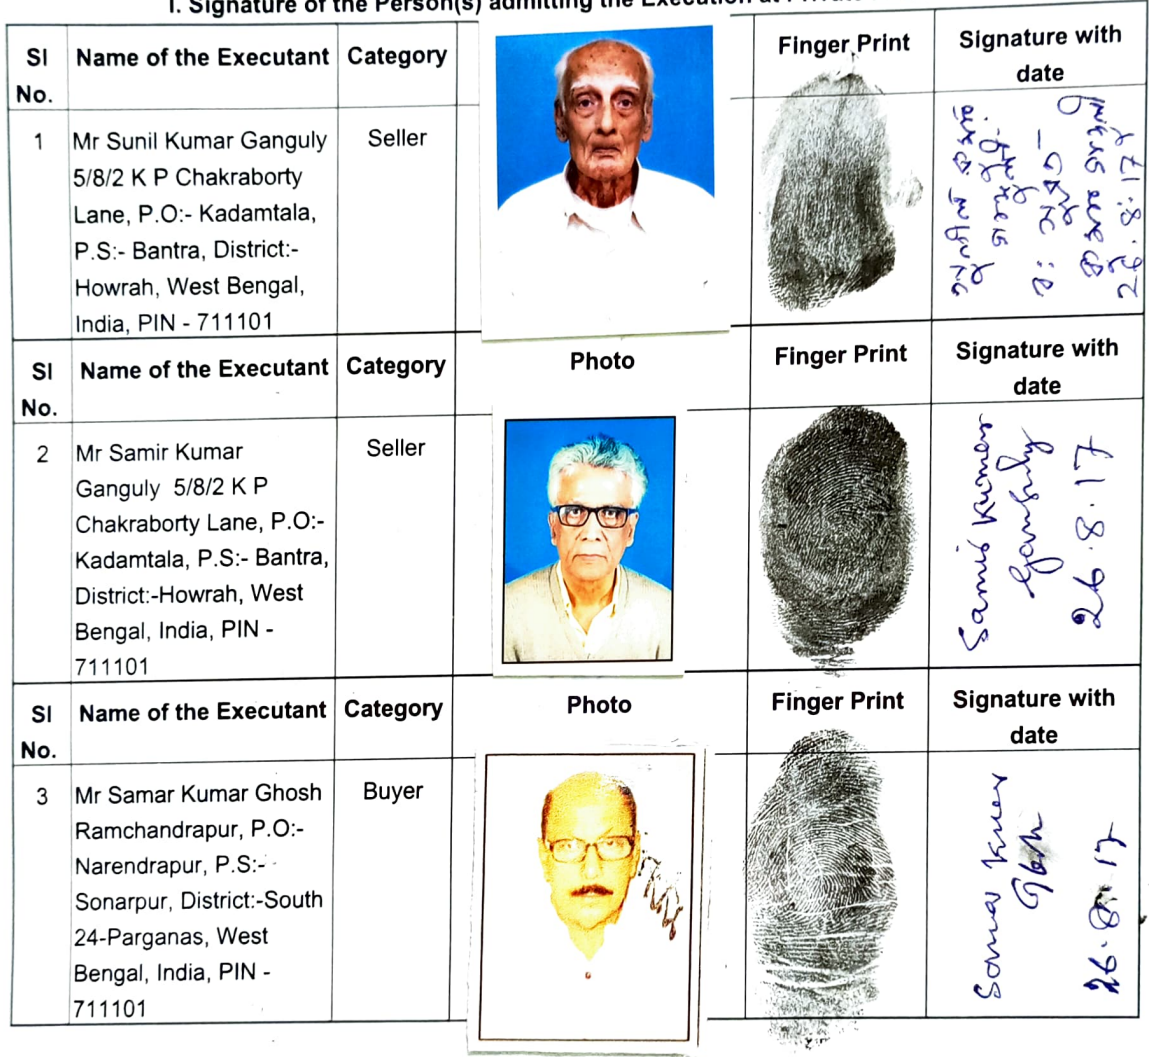 I. Signature of the Person(s) admitting the Execution at Private
Sl No. Name of the Executant Category Finger Print Signature with date
1 Mr Sunil Kumar Ganguly Seller
5/8/2 K P Chakraborty
Lane, P.O:- Kadamtala,
P.S:- Bantra, District:-
Howrah, West Bengal,
India, PIN - 711101
26.8.17
Sl No. Name of the Executant Category Photo Finger Print Signature with date
2 Mr Samir Kumar Seller
Ganguly 5/8/2 K P
Chakraborty Lane, P.O:-
Kadamtala, P.S:- Bantra,
District:-Howrah, West
Bengal, India, PIN -
711101
Samir Kumar
Ganguly
26.8.17
Sl No. Name of the Executant Category Photo Finger Print Signature with date
3 Mr Samar Kumar Ghosh Buyer
Ramchandrapur, P.O:-
Narendrapur, P.S:-
Sonarpur, District:-South
24-Parganas, West
Bengal, India, PIN -
711101
Samar Kumar
Ghosh
26.8.17